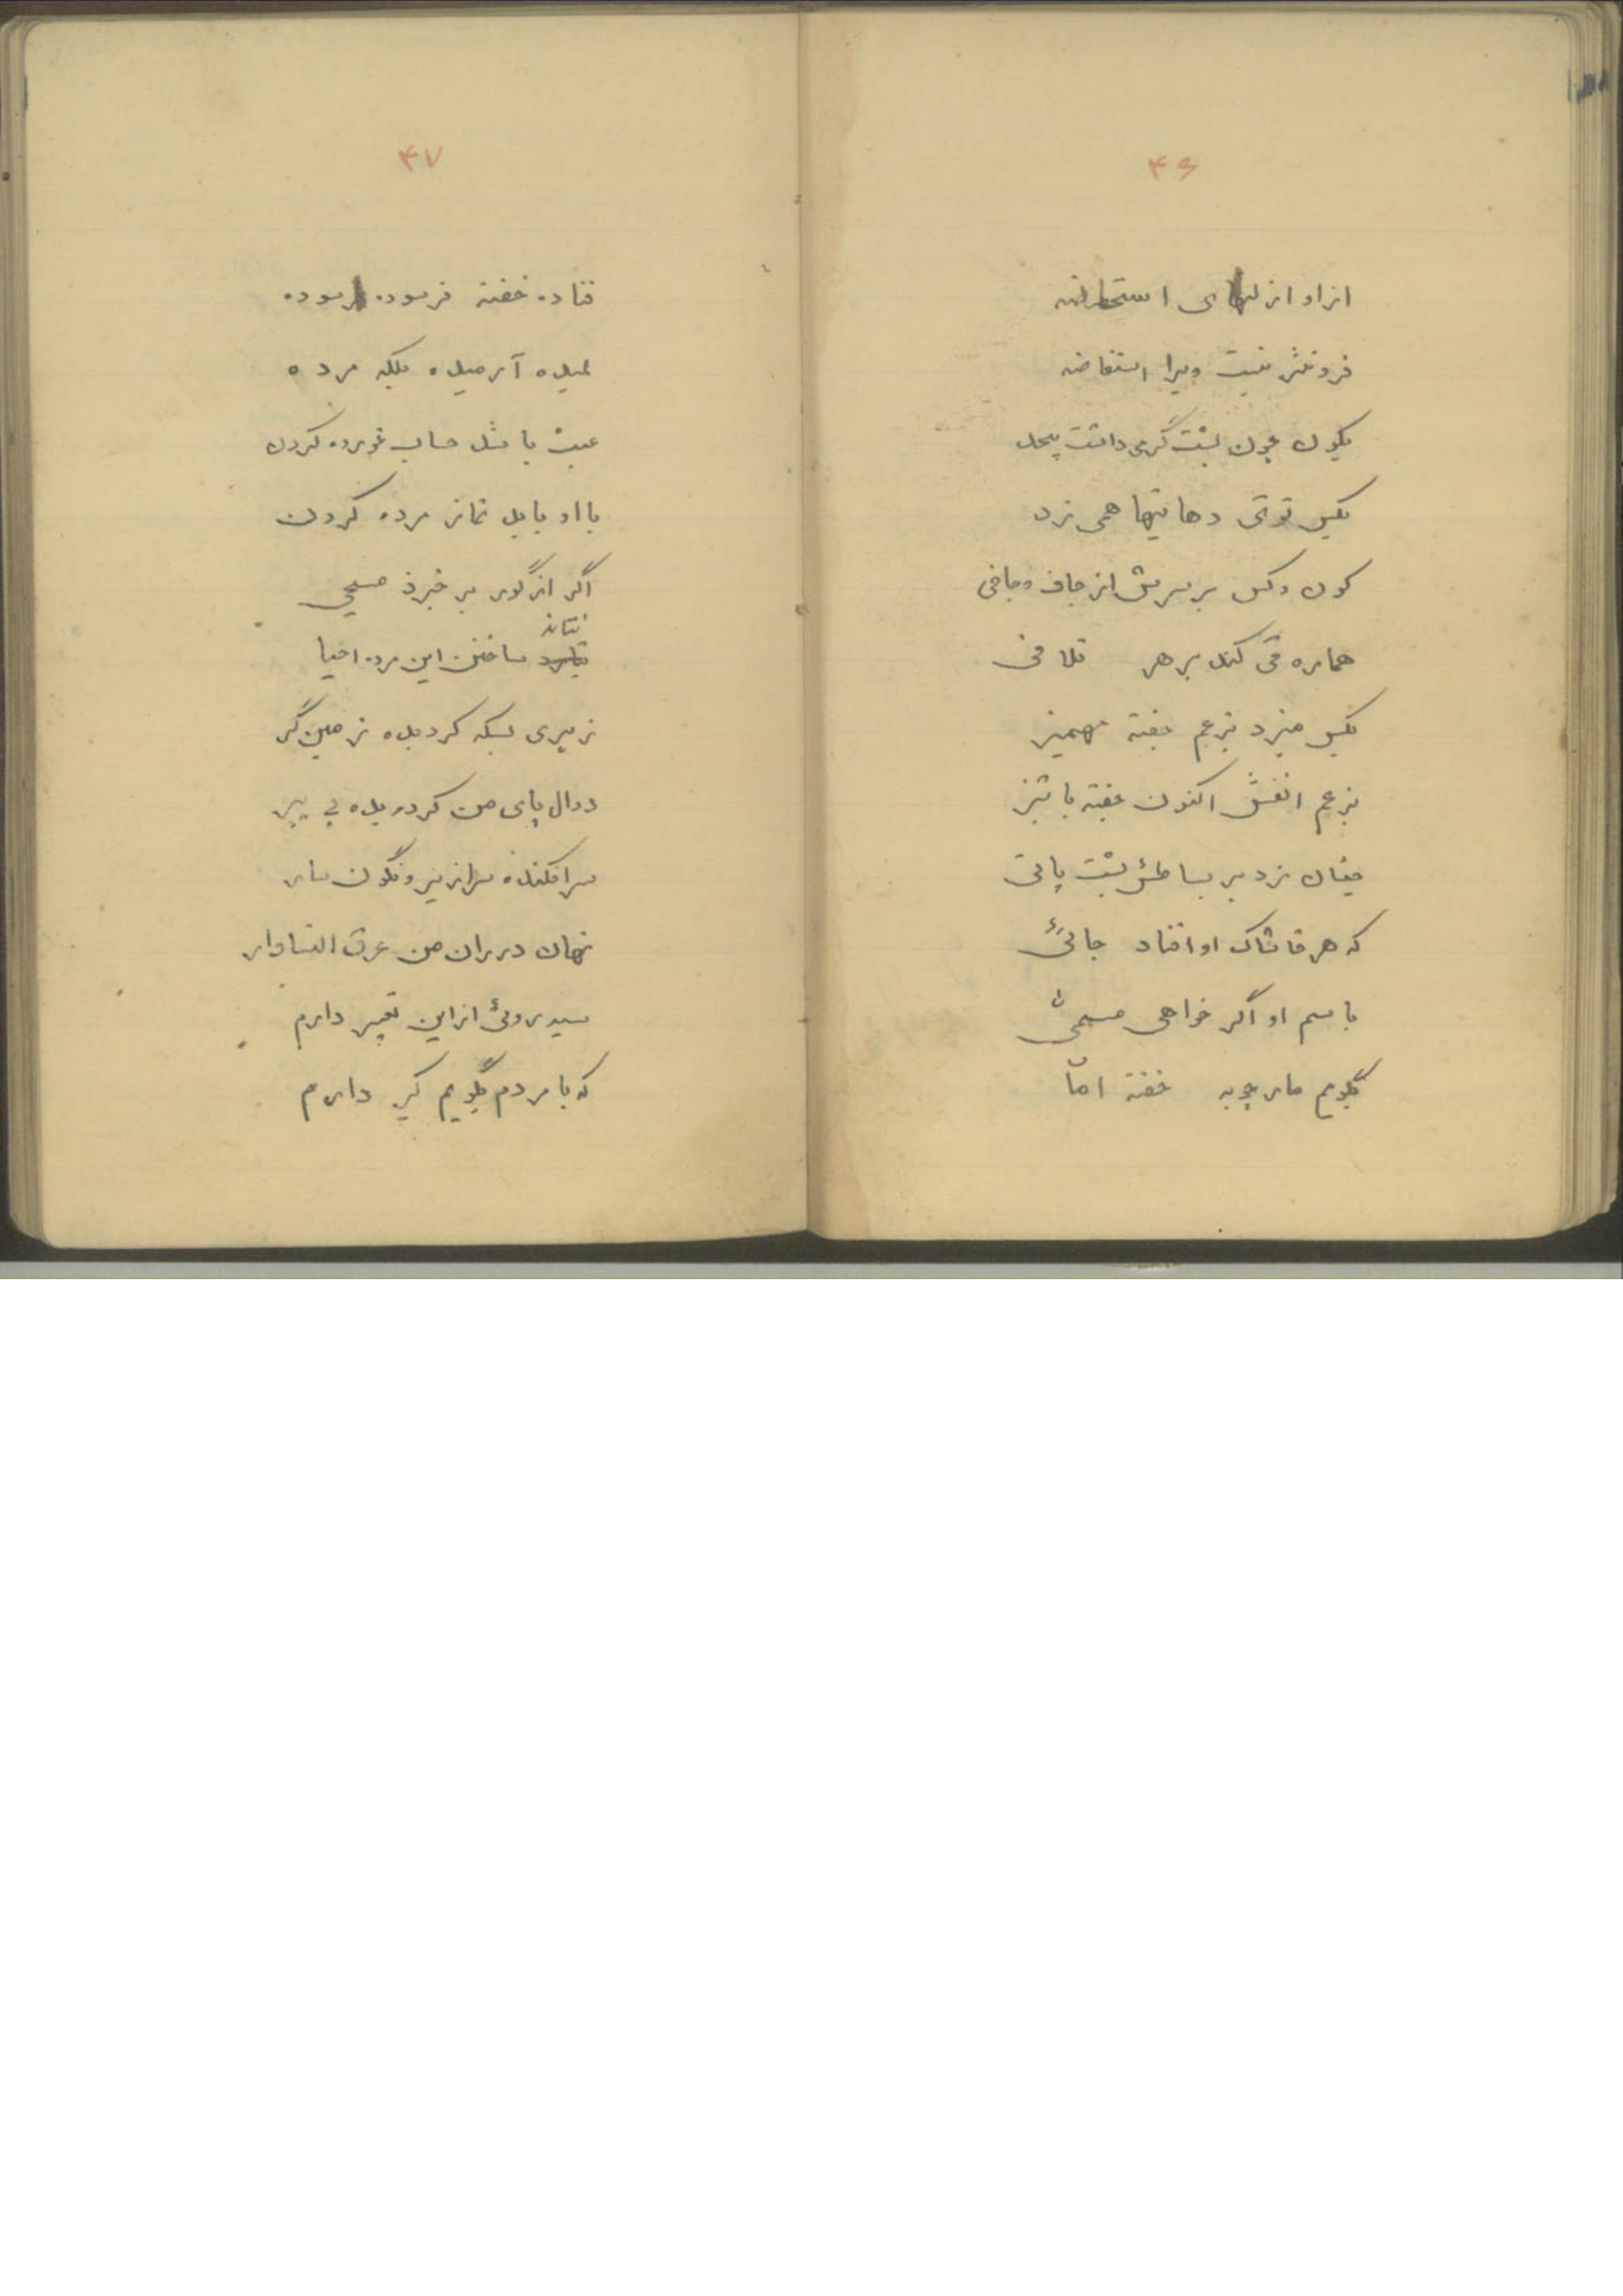 ۴۶
از او از لهای استحاضه
فزونتر نیست ویرا استفاضه
بکون چون پشت گرمی داشت بیحد
بکس توی دهانیها همی زد
کون وکس بر سرش از جاف وجافی
هماره قی کند بر هر تلافی
بکس میزد بزعم جفته مهمیز
بزعم انفش اکنون جفته با تیز
چنان زد بر بساطش پشت پائی
که هر خاشاک او افتاد جائی
باسم او اگر خواهی مسمی
بگویم مار چوبه خفته اما
۴۷
فتاده خفته فرسوده
لمیده آرمیده بلکه مرده
عبث باشد حساب غوره کردن
با او باید نماز مرده کردن
اگر از گور بر خیزد مسیحی
نتاند
ساختن این مرده احیا
ز پیری بسکه گردیده زمین گیر
دوال پای من گردیده بی پیر
سرافکنده سرازیر و نگون سار
نهان در ران من عرق النسا وار
سیه روئی از این تعبیر دارم
که با مردم بگویم کیر دارم